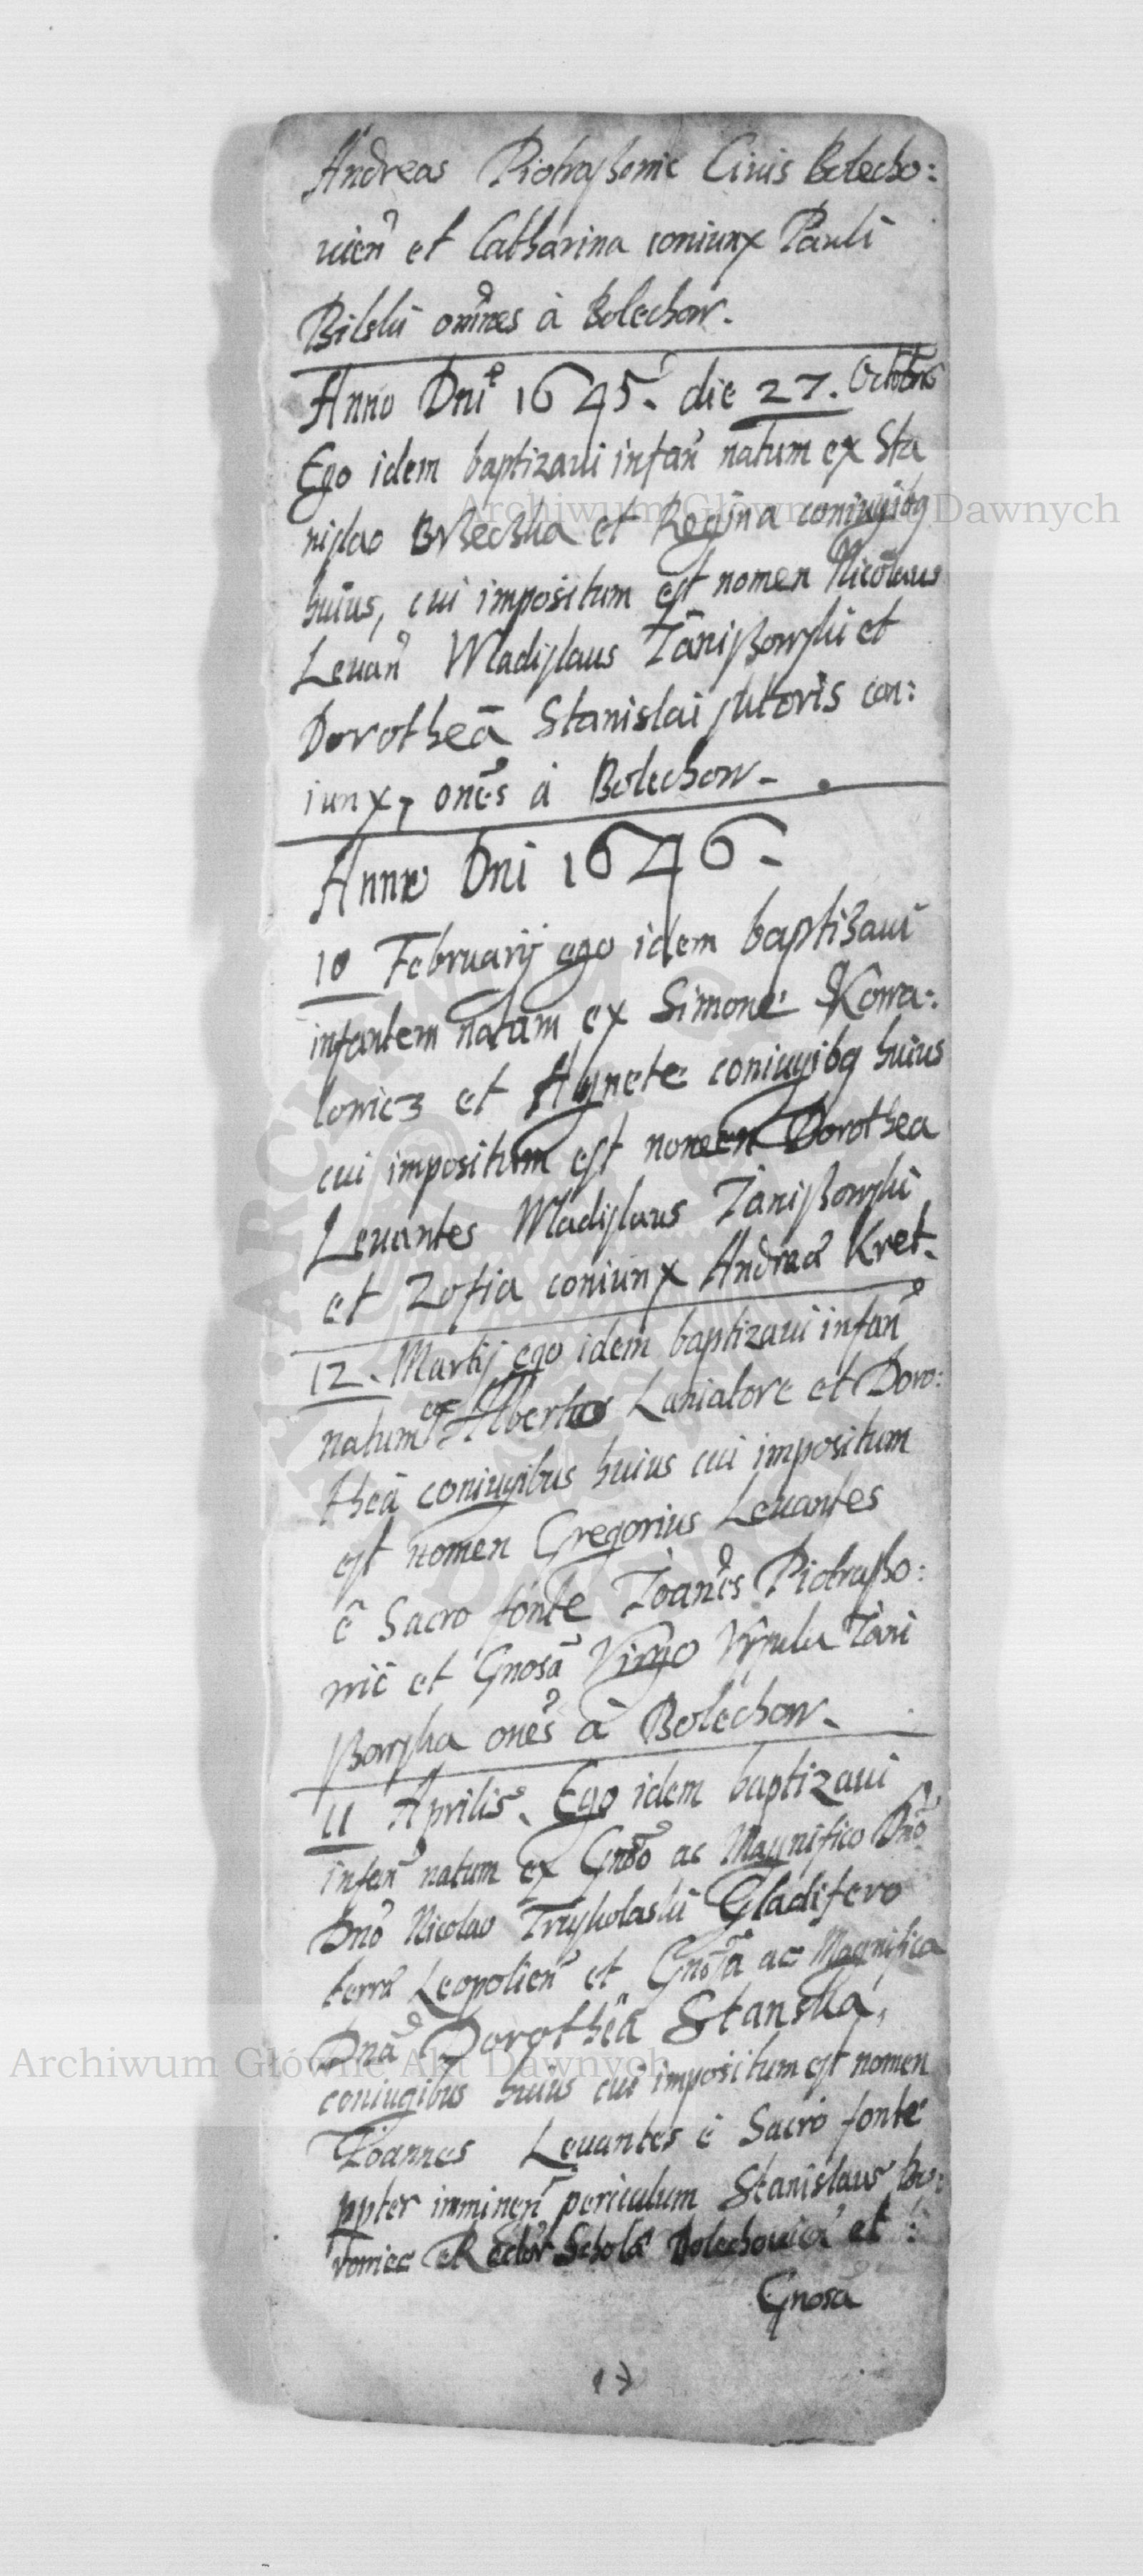 Andreas Piotraßowic Ciuis Bolecho:
uien̄ et Catharina coniunx Pauli
Bilski om̄nes à Bolechow.
Anno Dn̄i 1645. die 27. Octobris
Ego idem baptizaui infan̄ natum ex Sta
nislao et Regina coniugibq
huius, cui impositum est nomen Nicolaus
Leuan̄ Wladislaus Janißowski et
Dorotheā Stanislai sutoris con:
iunx, on̄es à Bolechow.
Anno Dn̄i 1646.
10 Februarij ego idem baptiзaui
infantem natam ex Simone Kowa:
lowicз et Agnete coniugibq huius
cui impositum est nomen Dorothea
Leuantes Wladislaus Janißowski
et Zofia coniunx Andreæ Kret.
12. Martij ego idem baptizaui infan̄
natum ex Alberto Laniatore et Doro:
theā coniugibus huius cui impositum
est nomen Gregorius Leuantes
è Sacro fonte Joan̄es Piotraßo:
wic et Gnosā Virgo Vrsula Jani
ßowska on̄es à Bolechow.
11 Aprilis. Ego idem baptizaui
infan̄ natum ex Gnōso ac Magnifico Dn̄o
Dn̄o Nicolao Gladifero
terræ Leopolien̄ et Gnosā ac Magnifica
Dn̄ā Dorotheā Stanska,
coniugibus huius cui impositum est nomen
Joannes Leuantes è Sacro fonte
ppter imminen̄ periculum Stanislaus Bo:
rowiec Rector Scholæ Bolechouien̄ et:
Gnosā
17
Archiwum Główne Akt Dawnych
Archiwum Główne Akt Dawnych